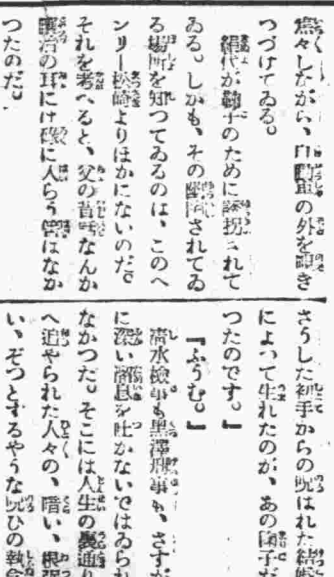 燻々しながら、自動車の外を覗き
つづけてゐる。
絹代が鞆子のために誘拐されて
ゐる。しかも、その幽閉されてゐ
る場所を知つてゐるのは、このヘ
ンリー松崎よりほかにないのだ。
それを考へると、父の昔話なんか
治の耳には碌に入らう筈はなか
つたのだ。
さうした初手からの呪はれた結婚
によつて生れたのが、あの子だ
つたのです。』
『ふうむ。』
清水検事も黒澤刑事も、さすが
に深い溜息を吐かないではゐられ
なかつた。そこには人生の裏通り
へ追やられた人々の、暗い、根強
い、ぞつとするやうな呪ひの執念